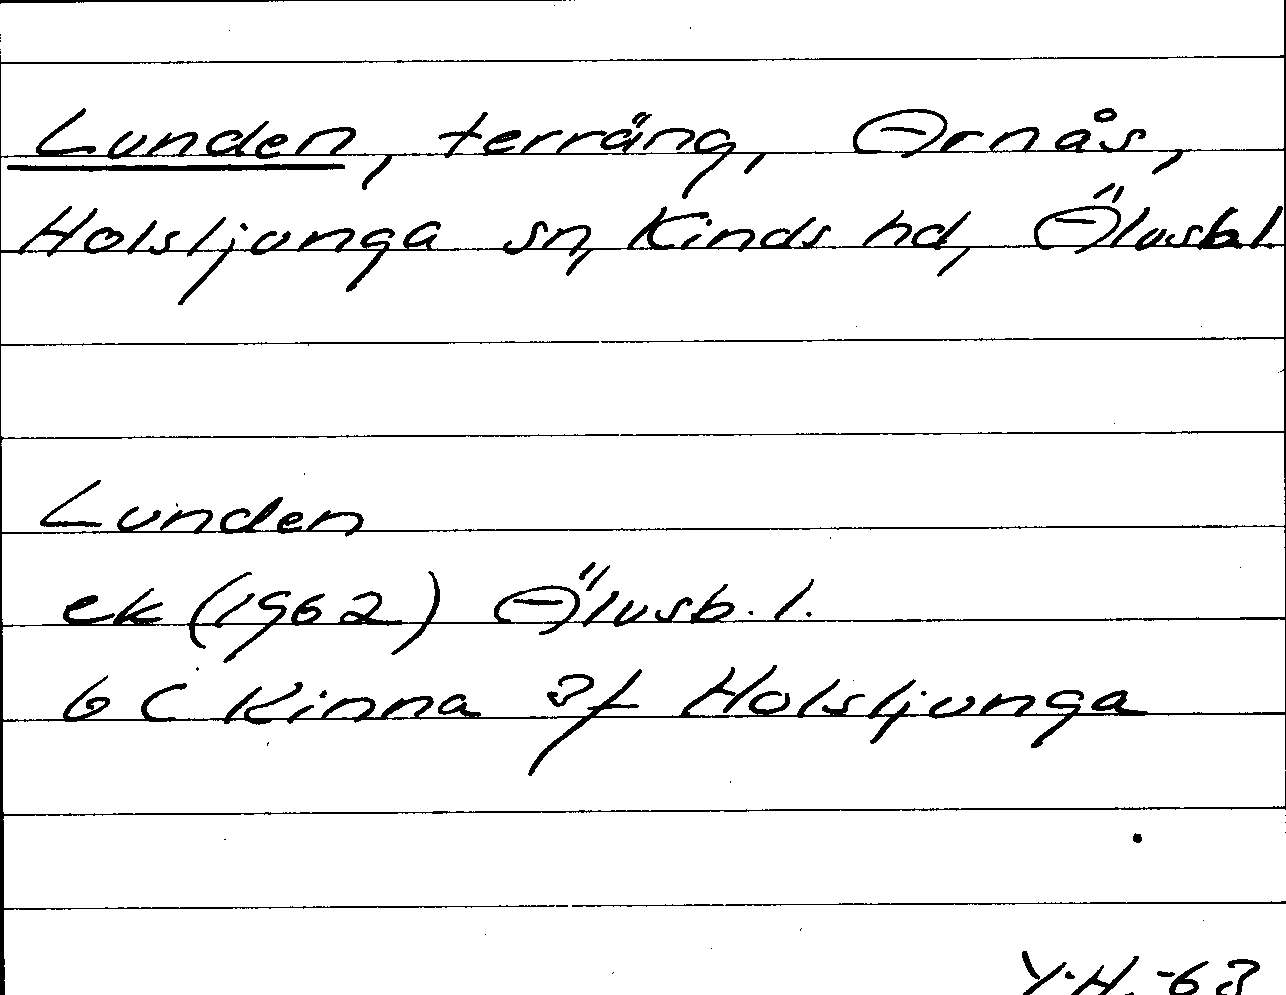 Lunden, terräng, Arnås,
Holsljunga sn, Kinds hd, Älvsb.l.
Lunden
ek (1962) Älvsb.l.
6 C Kinna 3f Holsljunga
Y.H. -63